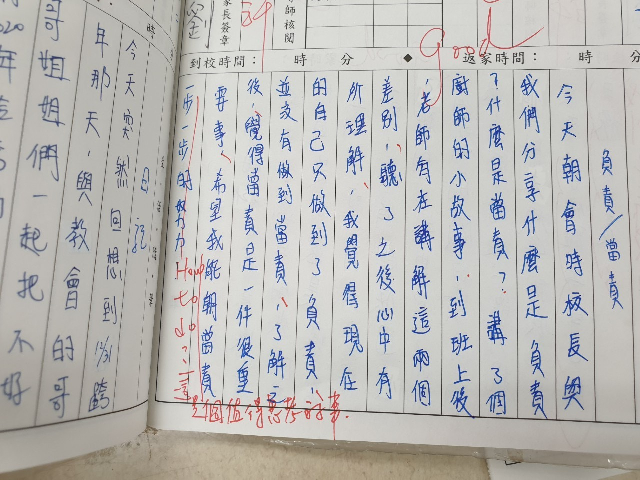 負責/當責
今天朝會時校長與
我們分享什麼是負責
?什麼是當責?講了個
廚師的小故事,到班上後
,老師有在講解這兩個
差別,聽了之後心中有
所理解,我覺得現在
的自己只做到了負責,
並沒有做到當責,了解之
後,覺得當責是一件很重
要事,希望我能朝當責
一步一步的努力
How to do?這
是個值得思考的事.
Good
家長簽章
師核閱
到校時間: 時 分 ◆ 返家時間: 時
日記
今天突然回想到12/31跨
年那天與教會的哥
哥姐姐們一起把不好